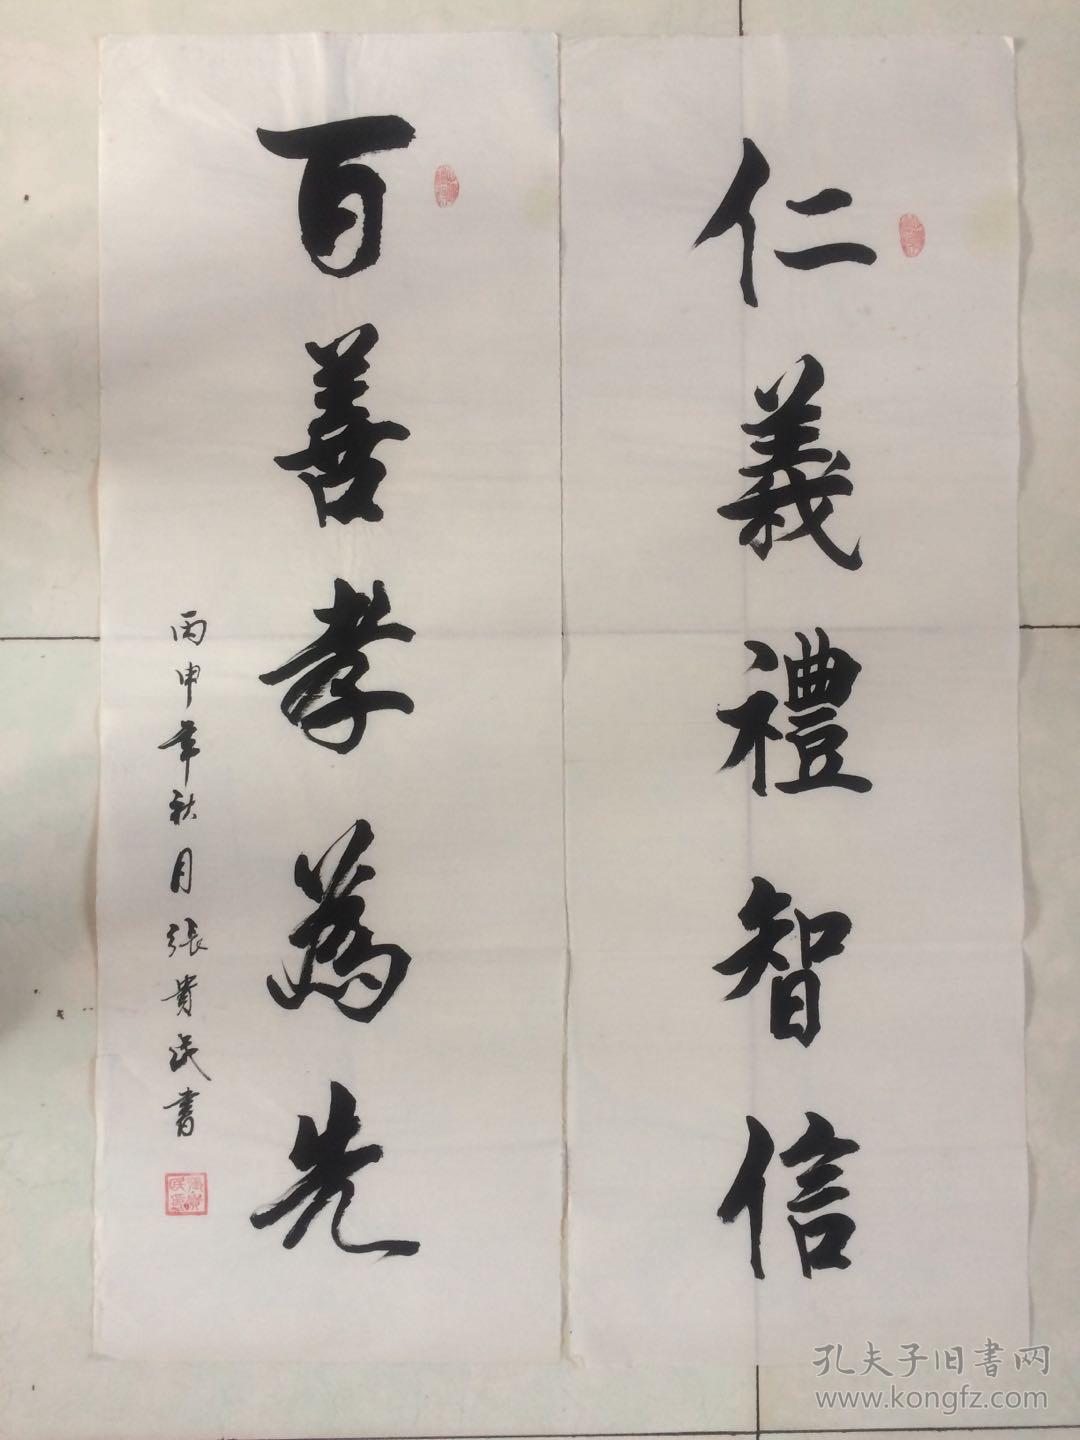 仁義禮智信
百善孝為先
丙申年秋月張貴民書
孔夫子旧書网
www.kongfz.com